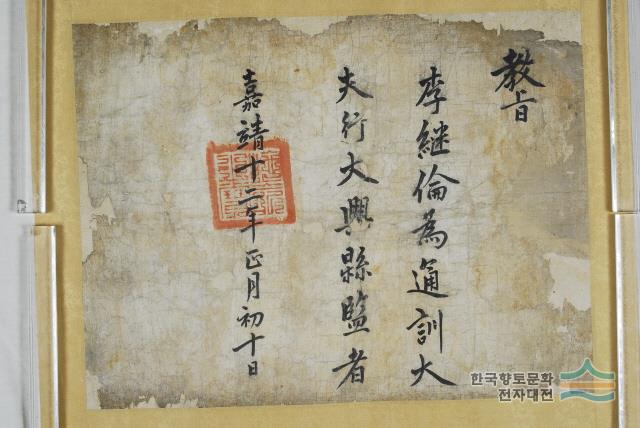 教旨
李継倫為通訓大
夫行大興縣監者
嘉靖十二年正月初十日
한국향토문화
전자대전